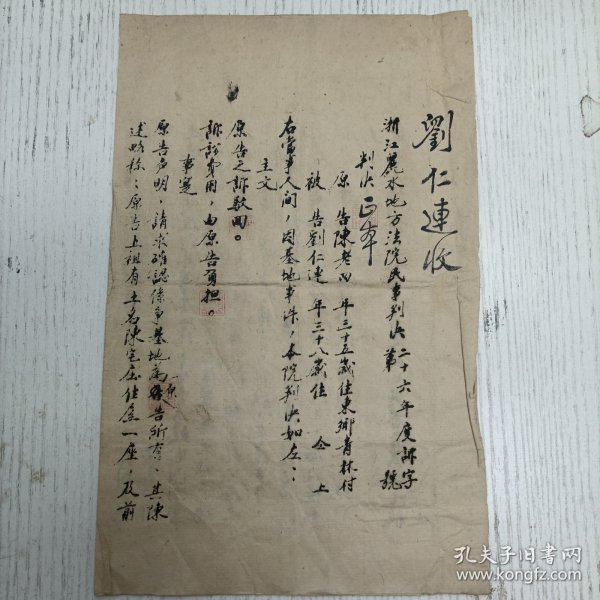 劉仁連收
浙江麗水地方法院民事判決二十六年度訴字
第 號
判決正本
原告陳老両年三十五歲住東鄉青林村
被告劉仁連年三十八歲住仝上
右當事人间，因基地事件，本院判決如左：
主文
原告之訴駁回。
訴訟費用，由原告負担。
事實
原告声明，請求確認係争基地為原告所有，其陳
述略称：原告上祖有土名陳宅屋住屋一座，及前
孔夫子旧书网
www.kongfz.com